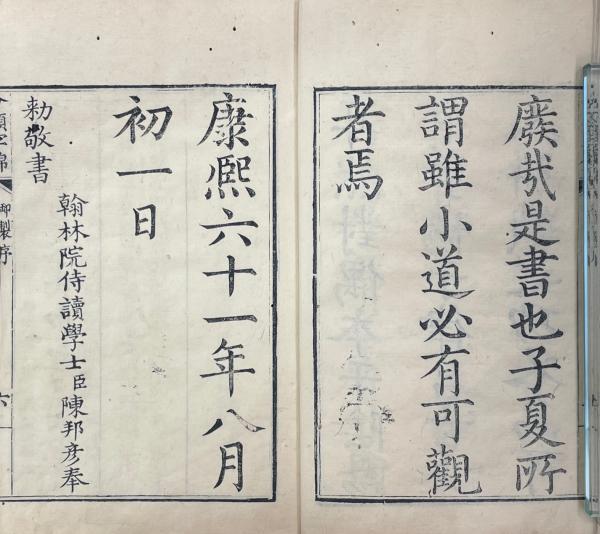 廢哉是書也子夏所
謂雖小道必有可觀
者焉
康熙六十一年八月
初一日
翰林院侍讀學士臣陳邦彥奉
勑敬書
御製序
六